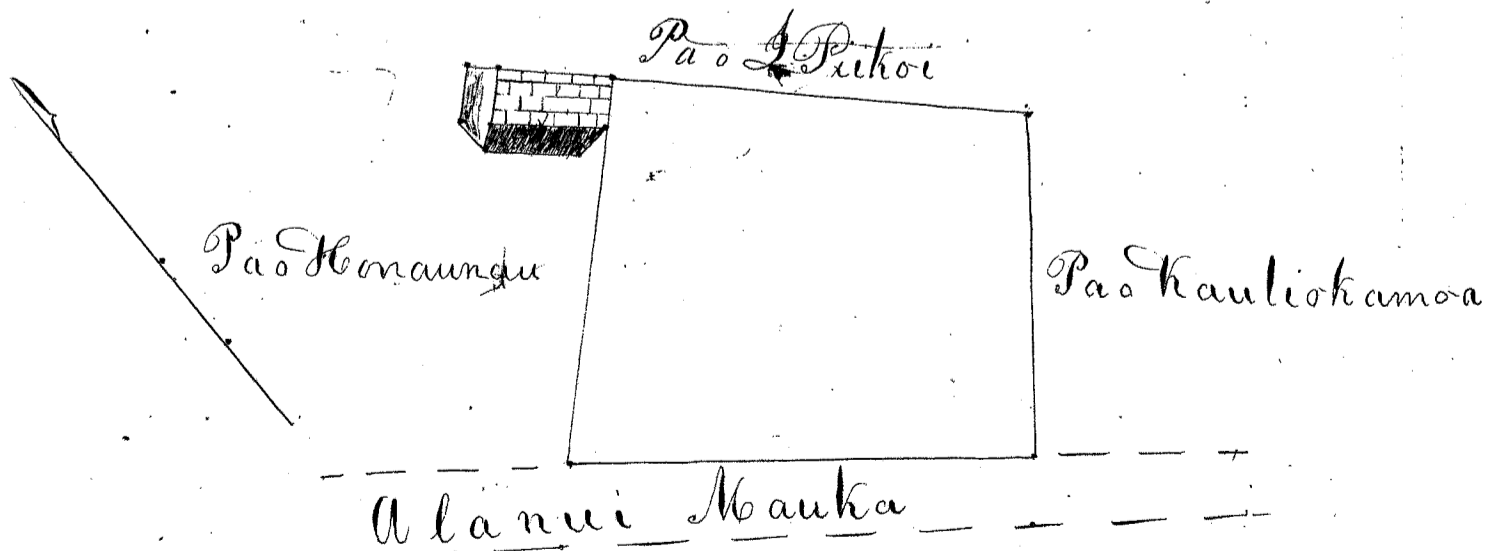 Pa o J Piikoi
Pa o Honaunau
Pa o Kauliokamoa
Alanui Mauka